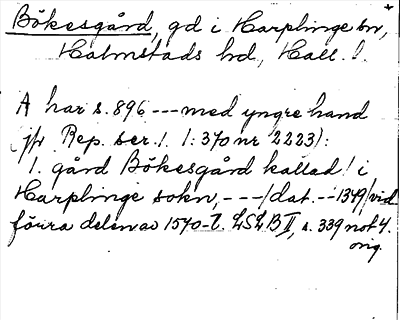 Bökesgård, gd i Harplinge sn,
Halmstads hd, Hall.!
A har s. 896 --- med yngre hand
jfr Rep. ser. 1. 1: 370 nr 2223):
1. gård Bökesgård kallad! i
Harplinge sokn, --- /dat. -- 1349/ vid
förra delen av 1540-t. LSLB II, s. 339 not 4.
orig.